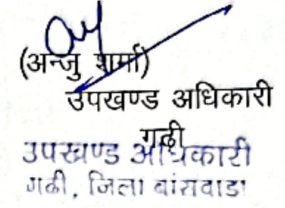 (अन्जु शर्मा)
उपखण्ड अधिकारी
गढी
उपखण्ड अधिकारी
गढी, जिला बांसवाडा